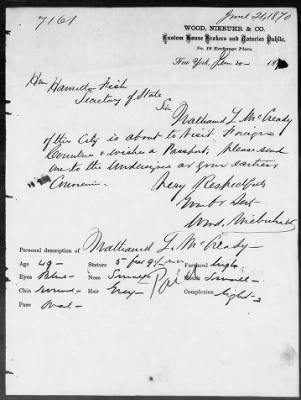 7161
June 21, 1870
WOOD, NIEBUHR & CO.
Custom House Brokers and Notaries Public,
No. 18 Exchange Place.
New York, Jun 20 187
Hon Hamilton Fish
Secretary of State
Sir
Nathaniel L McCready
of this City is about to visit Foreign
Countries & wishes a Passport, please send
one to the Undersigned at your earliest
Convenience.
Very Respectfully
Your Obt Servt
Wood, Niebuhr & Co
Personal description of Nathaniel L. McCready
Age 49 Stature 5 feet 9 Forehead high
Eyes Blue Nose Mouth Small
Chin Round Hair Gray Complexion light
Face Oval